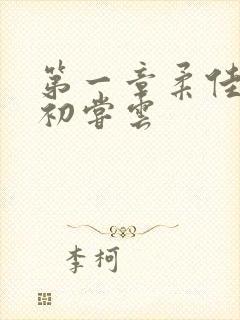 第一章柔佳
初尝雲
李柯